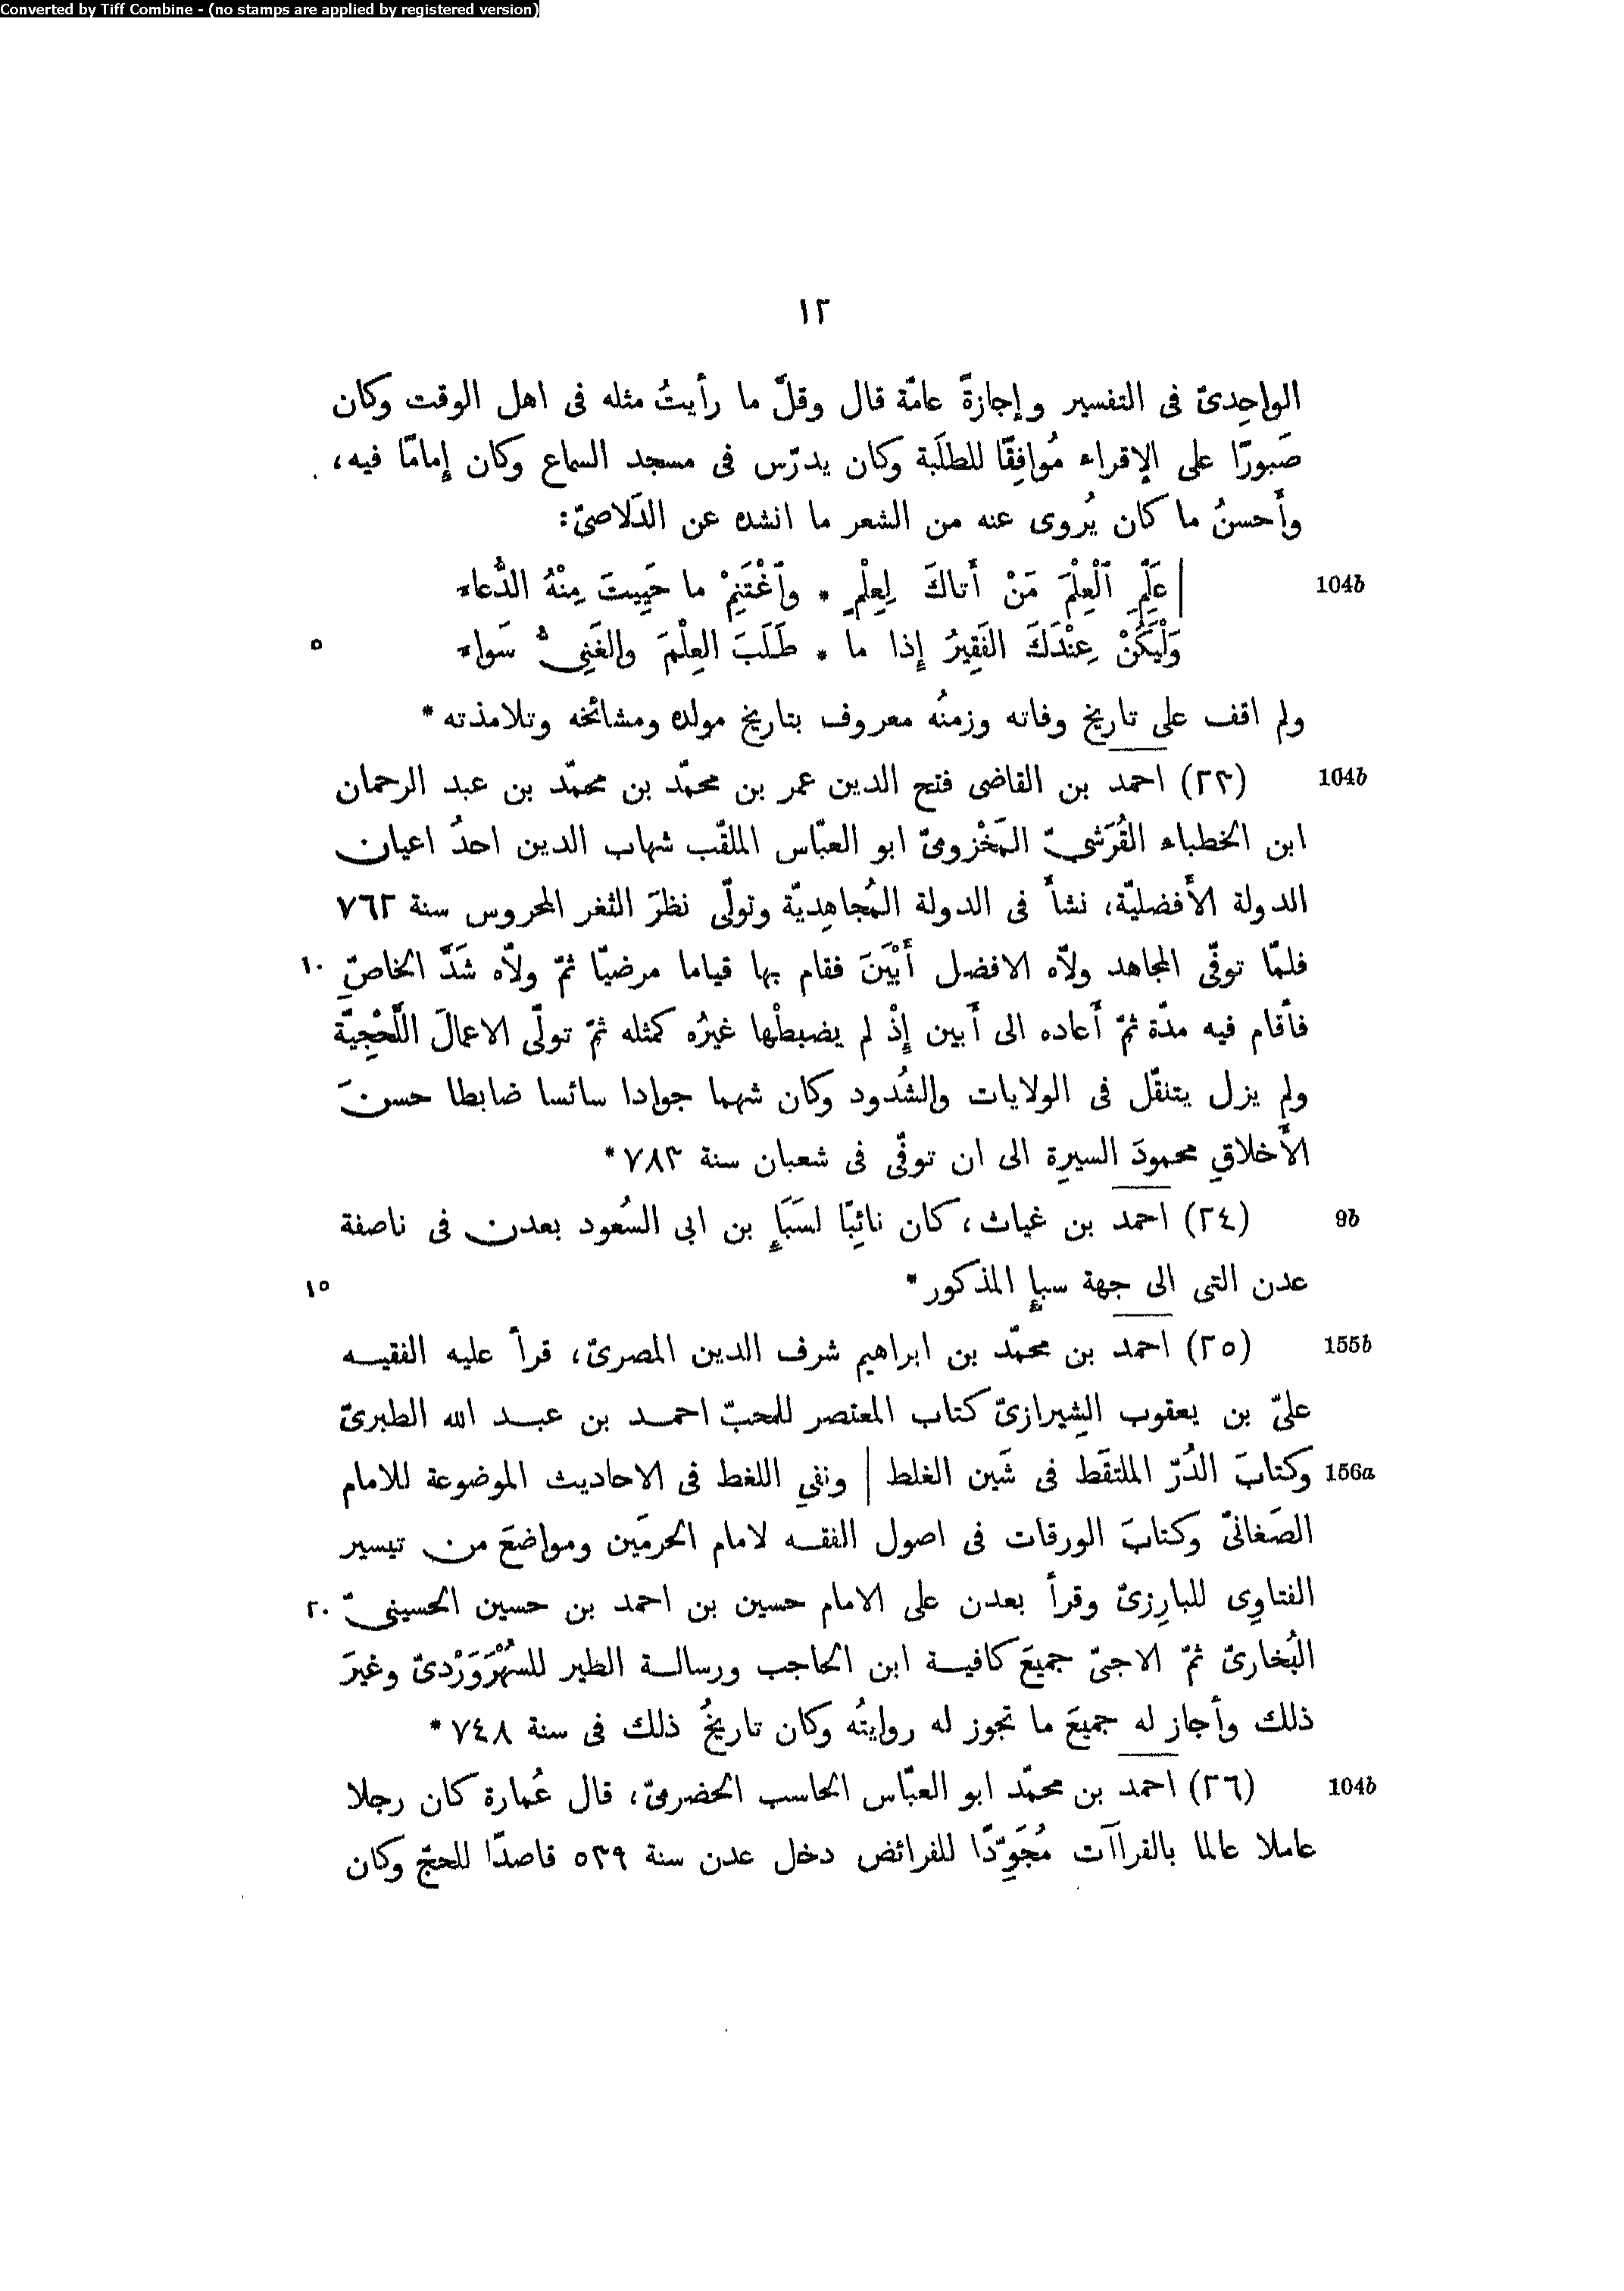 Converted by Tiff Combine - (no stamps are applied by registered version)
١٢
الواحِدىّ فى التفسير وإجازةً عامّة قال وقلّ ما رأيتُ مثله فى اهل الوقت وكان
صَبورًا على الإقراء مُوافِقًا للطلَبة وكان يدرّس فى مسجد السماع وكان إمامًا فيه،
وأَحسنُ ما كان يُروى عنه من الشعر ما انشده عن الدَلاصىّ:
104b | عَلِّمِ ٱلْعِلْمَ مَنْ أَتاكَ لِعِلْمٍ * وٱغْتَنِمْ ما حَيِيتَ مِنْهُ الدُّعاء
وَلْيَكُنْ عِنْدَكَ الفَقِيرُ إِذا ما * طَلَبَ العِلْمَ والغَنِىُّ سَواء ٥
ولم اقف على تاريخ وفاته وزمنُه معروف بتاريخ مولده ومشائخه وتلامذته *
104b (٢٣) احمد بن القاضى فتح الدين عمر بن محمّد بن محمّد بن عبد الرحمان
ابن الخطباء القُرَشىّ المَخْزومىّ ابو العبّاس الملقّب شهاب الدين احدُ اعيان
الدولة الأَفضليّة، نشأ فى الدولة المُجاهِديّة وتولّى نظرَ الثغر المحروس سنة ٧٦٢
فلمّا توفّى المجاهد ولاّه الافضل أَبْيَنَ فقام بها قياما مرضيّا ثمّ ولاّه شَدَّ الخاصِّ ١٠
فأقام فيه مدّة ثمّ أَعاده الى أَبين إِذْ لم يضبطْها غيرُه كمثله ثمّ تولّى الاعمالَ اللَّحْجِيّة
ولم يزل يتنقّل فى الولايات والشُدود وكان شهما جوادا سائسا ضابطا حسنَ
الأَخلاقِ محمودَ السيرةِ الى ان توفّى فى شعبان سنة ٧٨٣ *
9b (٢٤) احمد بن غياث، كان نائِبًا لسَبَإٍ بن ابى السُعود بعدن فى ناصفة
عدن التى الى جهة سبإٍ المذكور * ١٥
155b (٢٥) احمد بن محمّد بن ابراهيم شرف الدين المصرىّ، قرأ عليه الفقيه
علىّ بن يعقوب الشِيرازىّ كتاب المعتصر للمحبّ احمد بن عبد الله الطبرىّ
156a وكتابَ الدُرّ الملتقَط فى شَين الغلط | ونفىِ اللغط فى الاحاديث الموضوعة للامام
الصَغانىّ وكتابَ الورقات فى اصول الفقه لامام الحرمَين ومواضعَ من تيسير
الفتاوِى للبارِزىّ وقرأ بعدن على الامام حسين بن احمد بن حسين الحسينىّ ٢٠
البُخارىّ ثمّ الاجىّ جميعَ كافية ابن الحاجب ورسالة الطير للسُهْرَوَرْدىّ وغيرَ
ذلك وأجاز له جميعَ ما تجوز له روايتُه وكان تاريخُ ذلك فى سنة ٧٤٨ *
104b (٢٦) احمد بن محمّد ابو العبّاس الحاسب الحضرمىّ، قال عُمارة كان رجلا
عاملا عالما بالقراآت مُجَوِّدًا للفرائض دخل عدن سنة ٥٣٩ قاصدًا للحجّ وكان